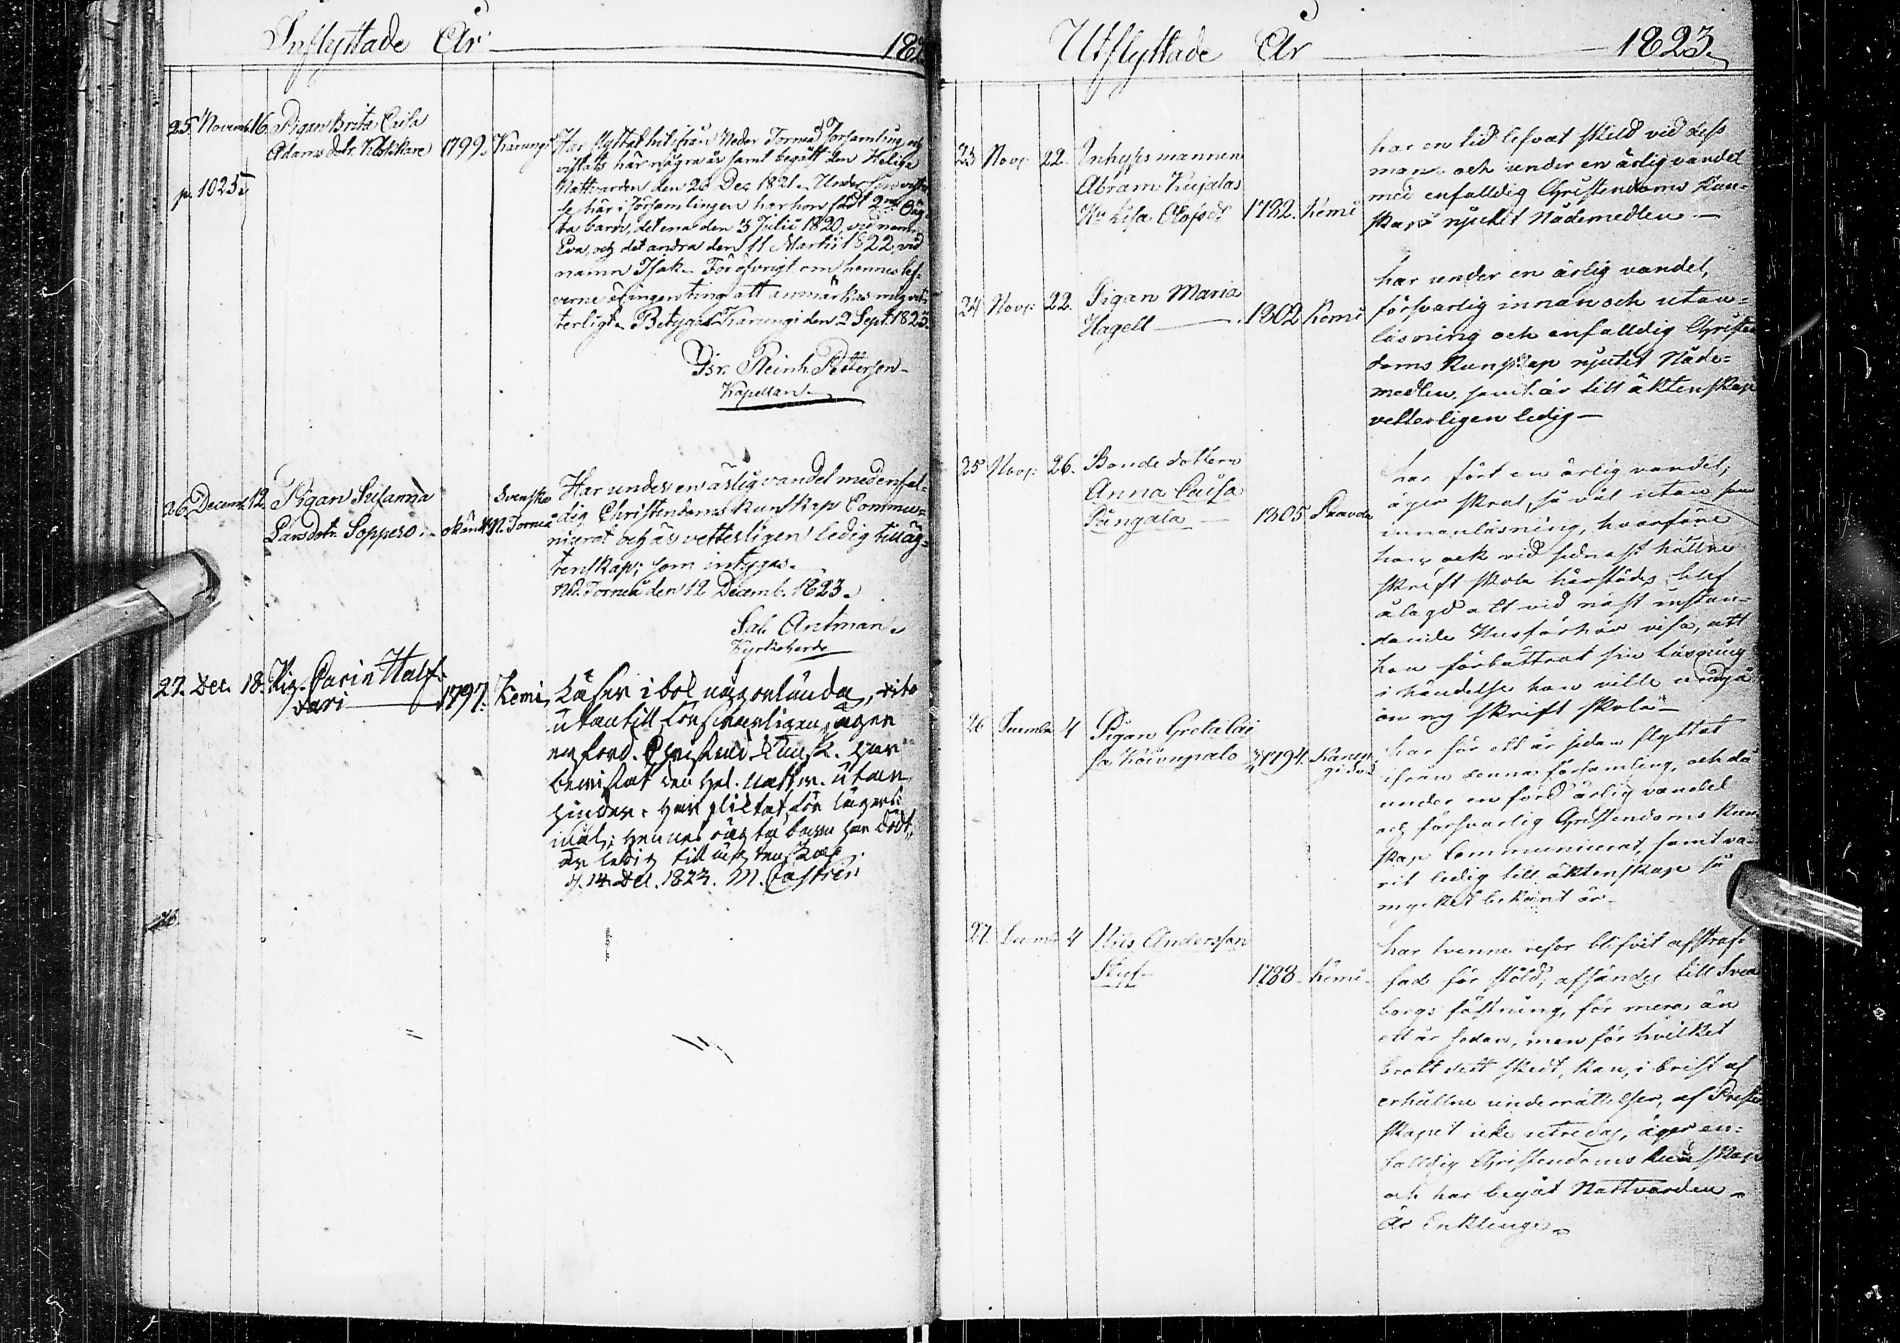 Inflyttade År 182
25. Novemb. 16. Pigan Brita Caisa
Adamsdotr. 1799. Karungi
p. 1025.
Har flyttat hit ifrån Neder Torneå Församling, och
vistats här några år samt begått den Heliga
Nattvarden den 26 Dec. 1821. Under sin vistel-
se här i Församlingen har hon födt 2ne Oäg-
ta barn, det ena den 3 Julii 1820, vid namn
Eva, och det andra den 11 Martii 1822, vid
namn Isak. För öfrigt om hennes lef-
verne är ingen ting att anmärkas mig vit-
terligt. Betygar Karungi den 2 Sept. 1823.
Reinh. Pettersson
Kapellan.
26. Decemb. 12. Pigan Susanna
Larsdotr. Soppero. okändt Svenska
N. Torneå
Har under en ärlig vandel med enfal-
dig Christendoms kunskap Commu-
nicerat och är vetterligen ledig till äg-
tenskap; som intygas.
Ned. Torneå den 12 Decemb. 1823.
Sal. Antman.
Kyrkoherde
27. Dec. 18. Pig. Carin Half-
vari 1797. Kemi
Läser i bok någorlunda,
utantill försvarligen, äger
enfald. Christend. kunsk. har
bevistat den Hel. Nattv. utan
hinder. Har pliktat för lägers-
mål; hennes oägta barn har dödt,
är ledig till ägtenskap.
d. 14 Dec. 1823. M. Castrén
Utflyttade År 1823.
23 Novr. 22. Inhyses mannen
Abram Kujalas
Hu Lisa Olofsdr 1782. Kemi
har en tid lefvat skild vid dess
man och under en ärlig vandel
med enfalldig Christendoms kun-
skap njutit Nådemedlen —
24 Novr. 22. Pigan Maria
Hagelt 1802 Kemi
har under en ärlig vandel,
försvarlig innan och utan-
läsning och enfalldig Christen
doms Kunskap njutit Nåde-
medlen, samt är till äktenskap
vetterligen ledig —
25 Novr. 26. Bonde dottern
Anna Caisa
Pångala 1805 Paavola
har fört en ärlig vandel,
äger svag, så väl utan som
innanläsning, hvarföre
hon ock vid sednast hållne
Skrift skola härstädes blef
ålagd att vid näst instun-
dande Husförhör visa, att
hon förbättrat sin läsning
i händelse hon ville undgå
en ny skrift skola —
26 Decembr 4 Pigan Greta Cai
sa Koivupalo 1794. Karun
gi
har för ett år sedan flyttat
ifrån denna församling, och då
under en förd ärlig vandel
och försvarlig Christendoms kun-
skap Communicerat, samt va-
rit ledig till äktenskap så
mycket bekant är.
27. Decembr 4 Nils Andersson
1788. Kemi.
har tvenne resor blifvit afstraf-
fad för stöld, afsändes till Svea
borgs fästning, för mera än
ett år sedan, men för hvilket
brott dett skedt, kan, i brist af
erhållne underrättelser, af Preste
skapet icke utredas, äger en-
falldig Christendoms kunskap
och har begåt Nattvarden.
är Enklinge.